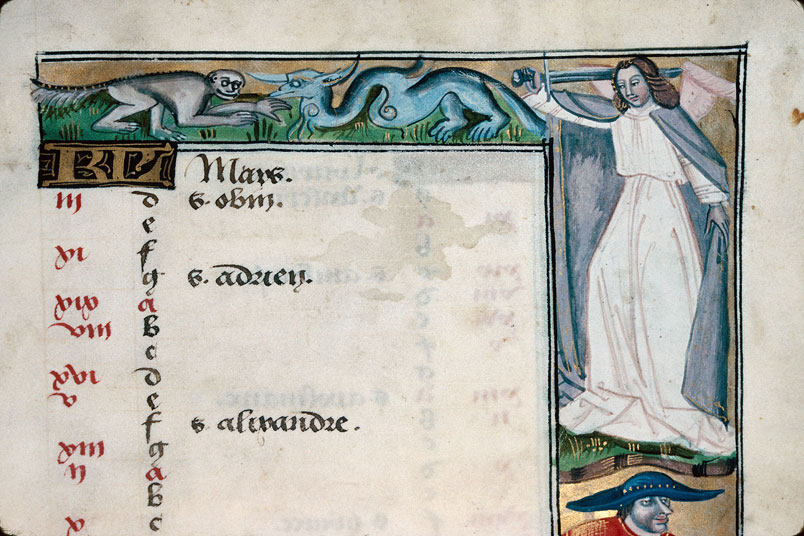 KL Mars.
iii d s. obin.
e
xi f
g s. adrien.
xix a
viii b
c
xvi d
v e
f s. alixandre.
xiii g
ii a
b
x c